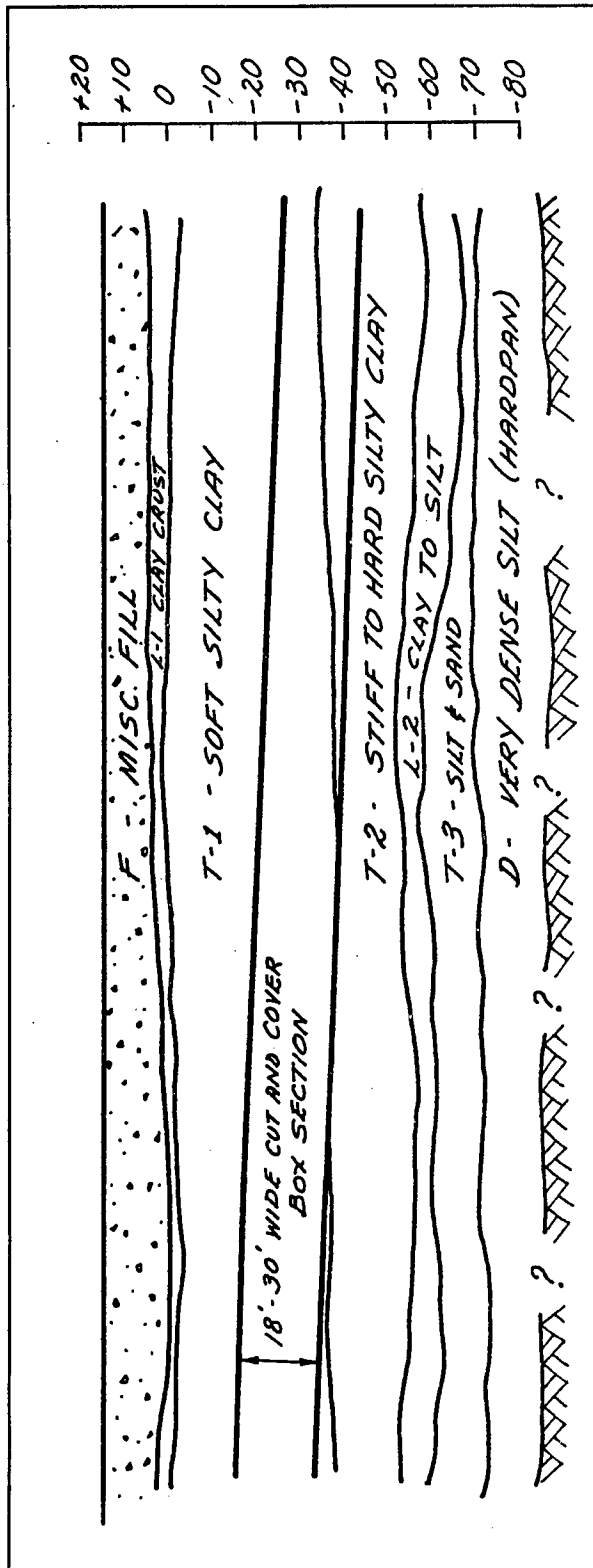 +20
+10
0
-10
-20
-30
-40
-50
-60
-70
-80
F. - MISC. FILL
L-1 CLAY CRUST
T-1 - SOFT SILTY CLAY
18'-30' WIDE CUT AND COVER
BOX SECTION
T-2 - STIFF TO HARD SILTY CLAY
L-2 - CLAY TO SILT
T-3 - SILT & SAND
D - VERY DENSE SILT (HARDPAN)
?
?
?
?